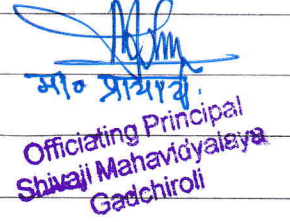 मा० प्राचार्य.
Officiating Principal
Shivaji Mahavidyalaya
Gadchiroli